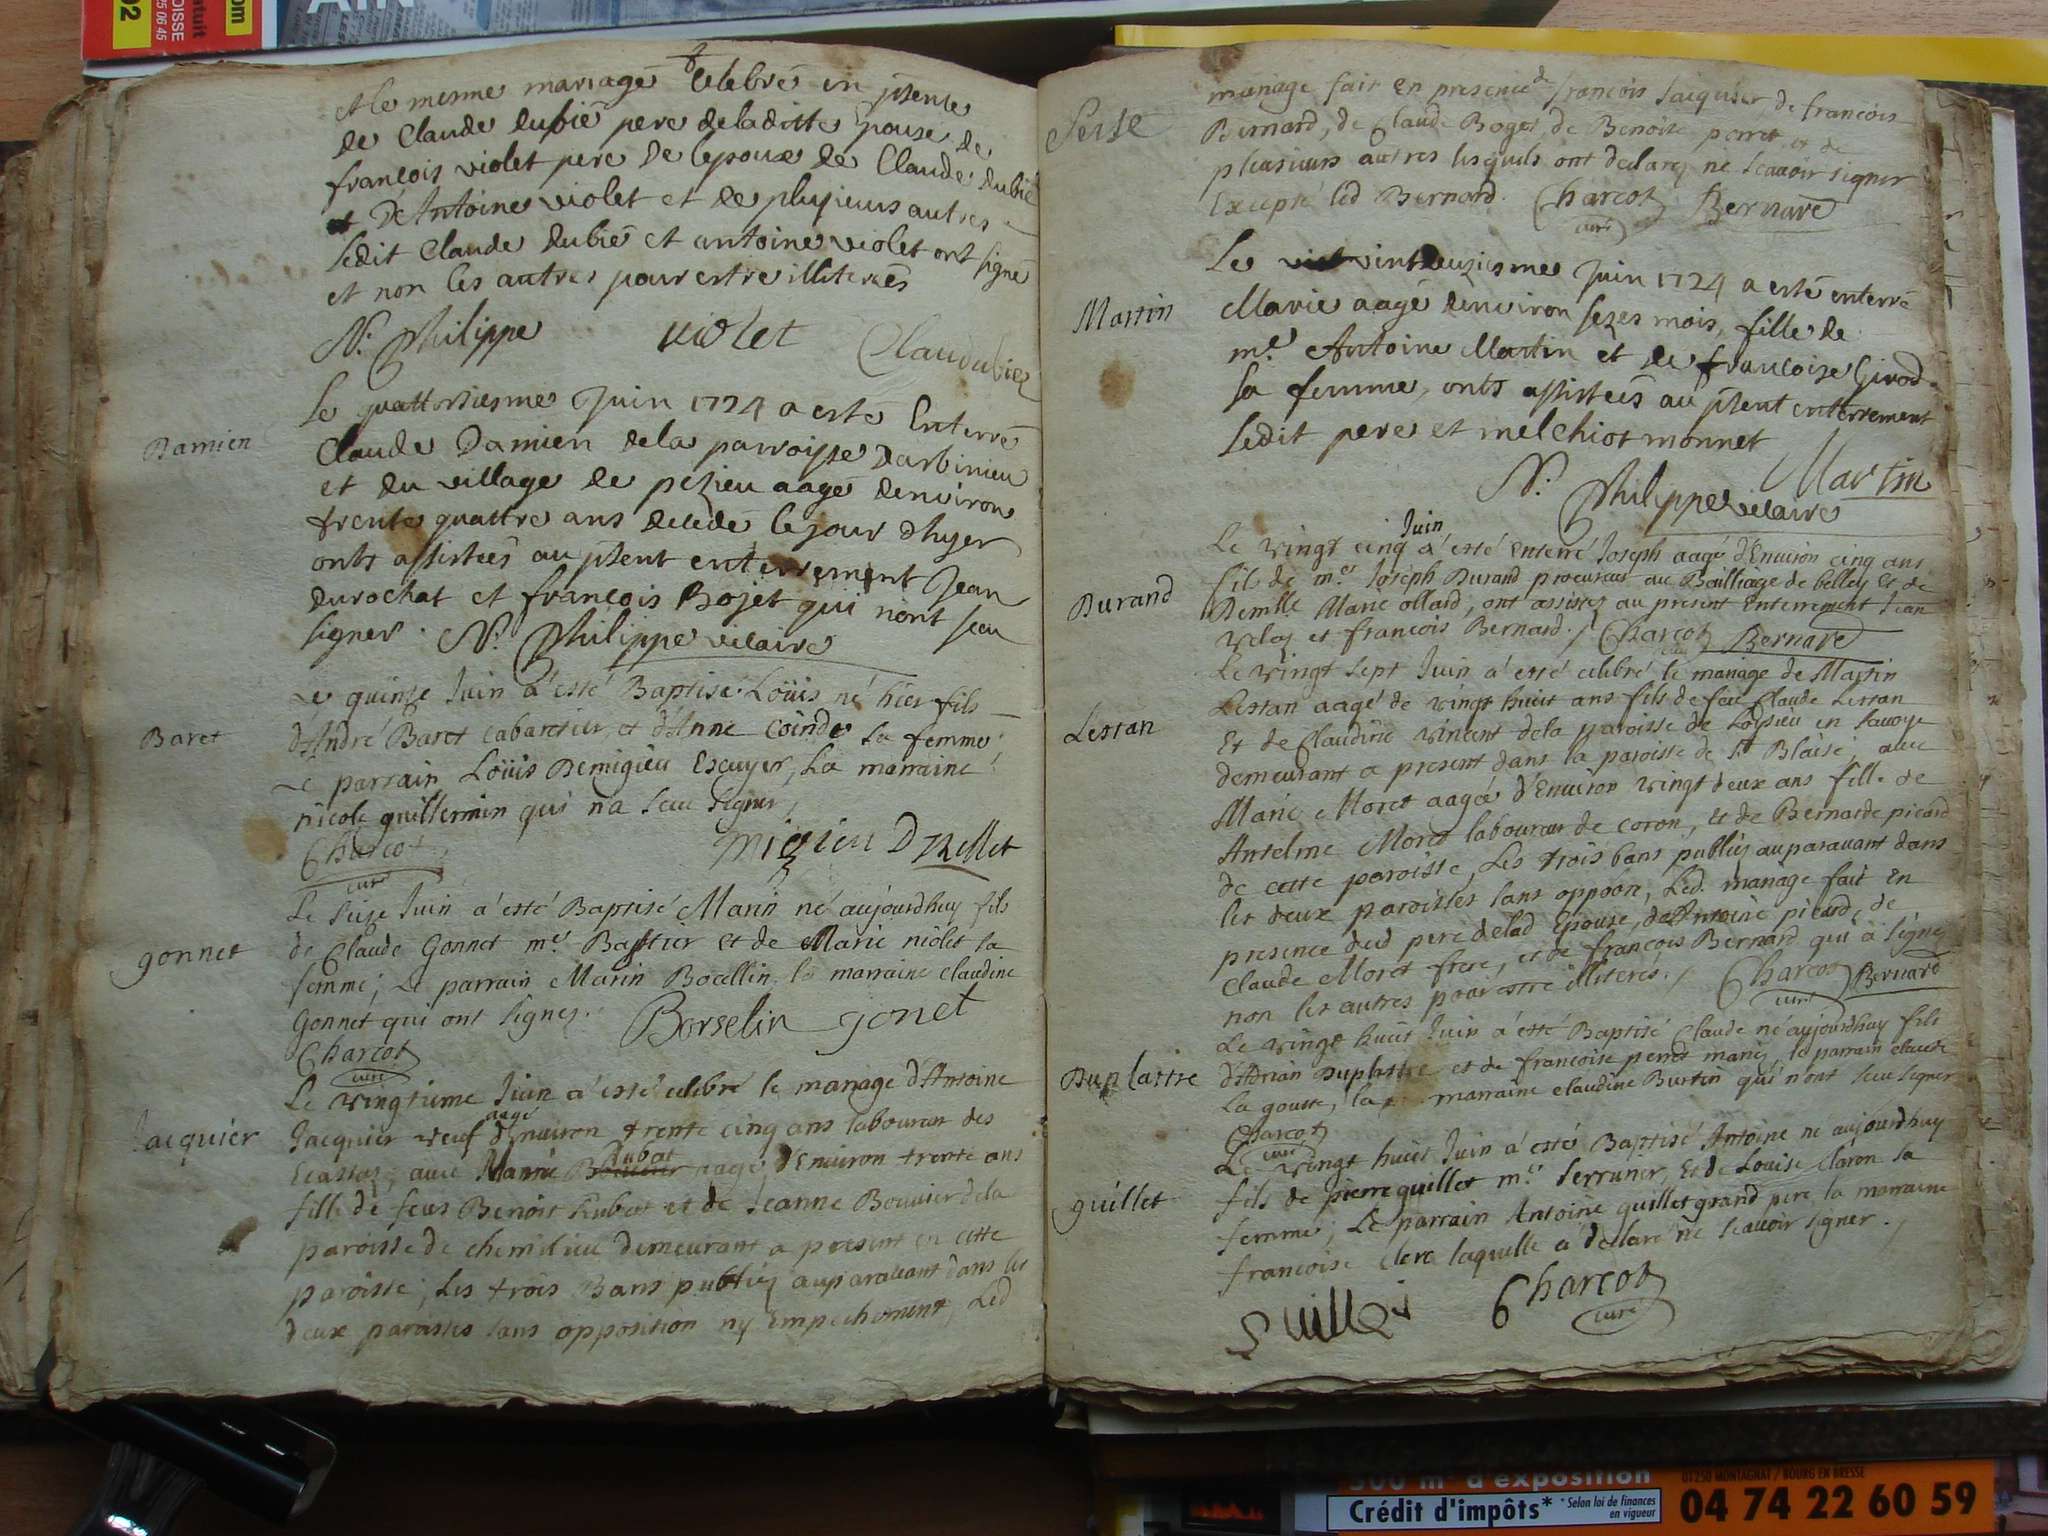 et le mesme mariage Celebré en pñence
de Claude dubié pere de laditte Epouse, de
francois violet pere de lepoux de Claude dubié
et D'Antoine violet et de plusieurs autres
ledit Claude dubié et antoine violet ont signé
et non les autres pour estre illiterés
N. Philippe violet Claudubiez
Damien
Le quattorsiesme Juin 1724 a esté Enterré
Claude Damien de la parroisse Darbinieu
et du village de pezieu aagé denviron
trente quattre ans decedé le jour d'hyer
onts assistées au pñent enterrement Jean
durochat et francois Bojet qui n'ont sceu
signer. N. Philippe vicaire
Baret
Le quinze Juin a esté Baptisé Loüis né hier fils
d'André Baret cabaretier, et d'Anne Coinde sa femme;
Le parrain Loüis Demigieu Escuyer, La marraine
nicole guillermin qui n'a sceu signer,
Charcot curé migieu D
gonnet
Le seize Juin a esté Baptisé Marin né aujourdhuy fils
de Claude Gonnet me Bastier et de Marie niolet sa
femme; Le parrain Marin Bocellin, la marraine claudine
Gonnet qui ont signez. Borselin gonet
Charcot
curé
Jacquier
Le vingtieme Juin a esté celebré le mariage d'Antoine
Jacquier veuf aagé d'Environ trente cinq ans laboureur des
Ecassaz, avec Marie Rubat aagé d'Environ trente ans
fille de feus Benoist Rubat et de Jeanne Bouvier de la
paroisse de chemilieu demeurant a present en cette
paroisse; Les trois Bans publiez auparavant dans les
deux paroisses sans opposition ny empechement, Led
mariage fait en presence de francois Jacquier de francois
Bernard, de Claude Boget, de Benoist perret et de
plusieurs autres lesquels ont declarez ne scavoir signer
Excepté led Bernard. Charcot curé Bernard
Martin
Le vintdeuziesme Juin 1724 a esté enterré
Marie aagé denviron sezes mois, fille de
me. Antoine Martin et de francoise Girod
sa femme, onts assistées au pñent enterrement
ledit pere et melchiot monnet
Martin
N. Philippe vicaire
Durand
Le vingt cinq Juin a esté Enterré Joseph aagé d'Environ cinq ans
fils de me Joseph Durand procureur au Bailliage de belley et de
Demlle Marie ollard, ont assistez au present Enterrement Jean
velaz et francois Bernard. Charcot curé Bernard
Lestan
Le vingt sept Juin a esté celebré le mariage de Martin
Lestan aagé de vingt huit ans fils de feu Claude Lestan
Et de Claudine vincent de la paroisse de Loysieu en savoye
demeurant a present dans la paroisse de St Blaise, avec
Marie Moret aagée d'Environ vingt deux ans fille de
Anselme Moret laboureur de coron, et de Bernarde picard
de cette paroisse, Les trois bans publiez auparavant dans
les deux paroisses sans oppoon, Led. mariage fait en
presence dud pere de lad Epouse, d'Antoine picard, de
Claude Moret frere, et de francois Bernard qui a signez
non les autres pour estre illiterés. Charcot curé Bernard
Duplastre
Le vingt huit Juin a esté Baptisé Claude né aujourdhuy fils
d'Adrian Duplastre et de francoise perret mariez, le parrain claude
La goutte, la marraine claudine Burtin qui n'ont sceu signer
Charcot
curé
guillet
Le vingt huit Juin a esté Baptisé Antoine né aujourdhuy
fils de pierre guillet me. Serrurier, Et de Louise Claron sa
femme; Le parrain Antoine guillet grand pere, la marraine
francoise Clerc laquelle a declaré ne scavoir signer.
guillet Charcot
curé
500 m² d'exposition
01250 MONTAGNAT / BOURG EN BRESSE
Crédit d'impôts* *Selon loi de finances
en vigueur
04 74 22 60 59